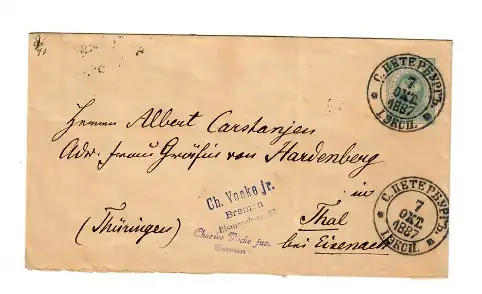 С. ПЕТЕРБУРГЪ
7
ОКТ.
1887
1. ЭКСП.
Herrn Albert Carstanjen
Adr. Frau Gräfin von Hardenberg
in
Thal
bei Eisenach
(Thüringen)
Ch. Vocke jr.
Bremen
Charles Vocke jun.
Bremen
С. ПЕТЕРБУРГЪ
7
ОКТ.
1887
1. ЭКСП.